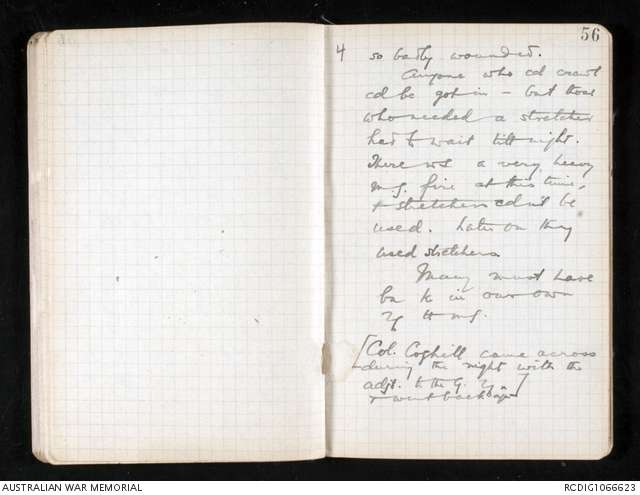 56
4 so badly wounded.
Anyone who cd crawl
cd be got in - but those
who needed a stretcher
had to wait till night.
There ws a very heavy
m.g. fire at this time,
& stretchers cdnt be
used. Later on they
used stretchers
Many must have
bn k in our own
by m.g.
[Col. Coghill came across
during the night with the
adjt. to the G.
& went back agn]
AUSTRALIAN WAR MEMORIAL
RCDIG1066623